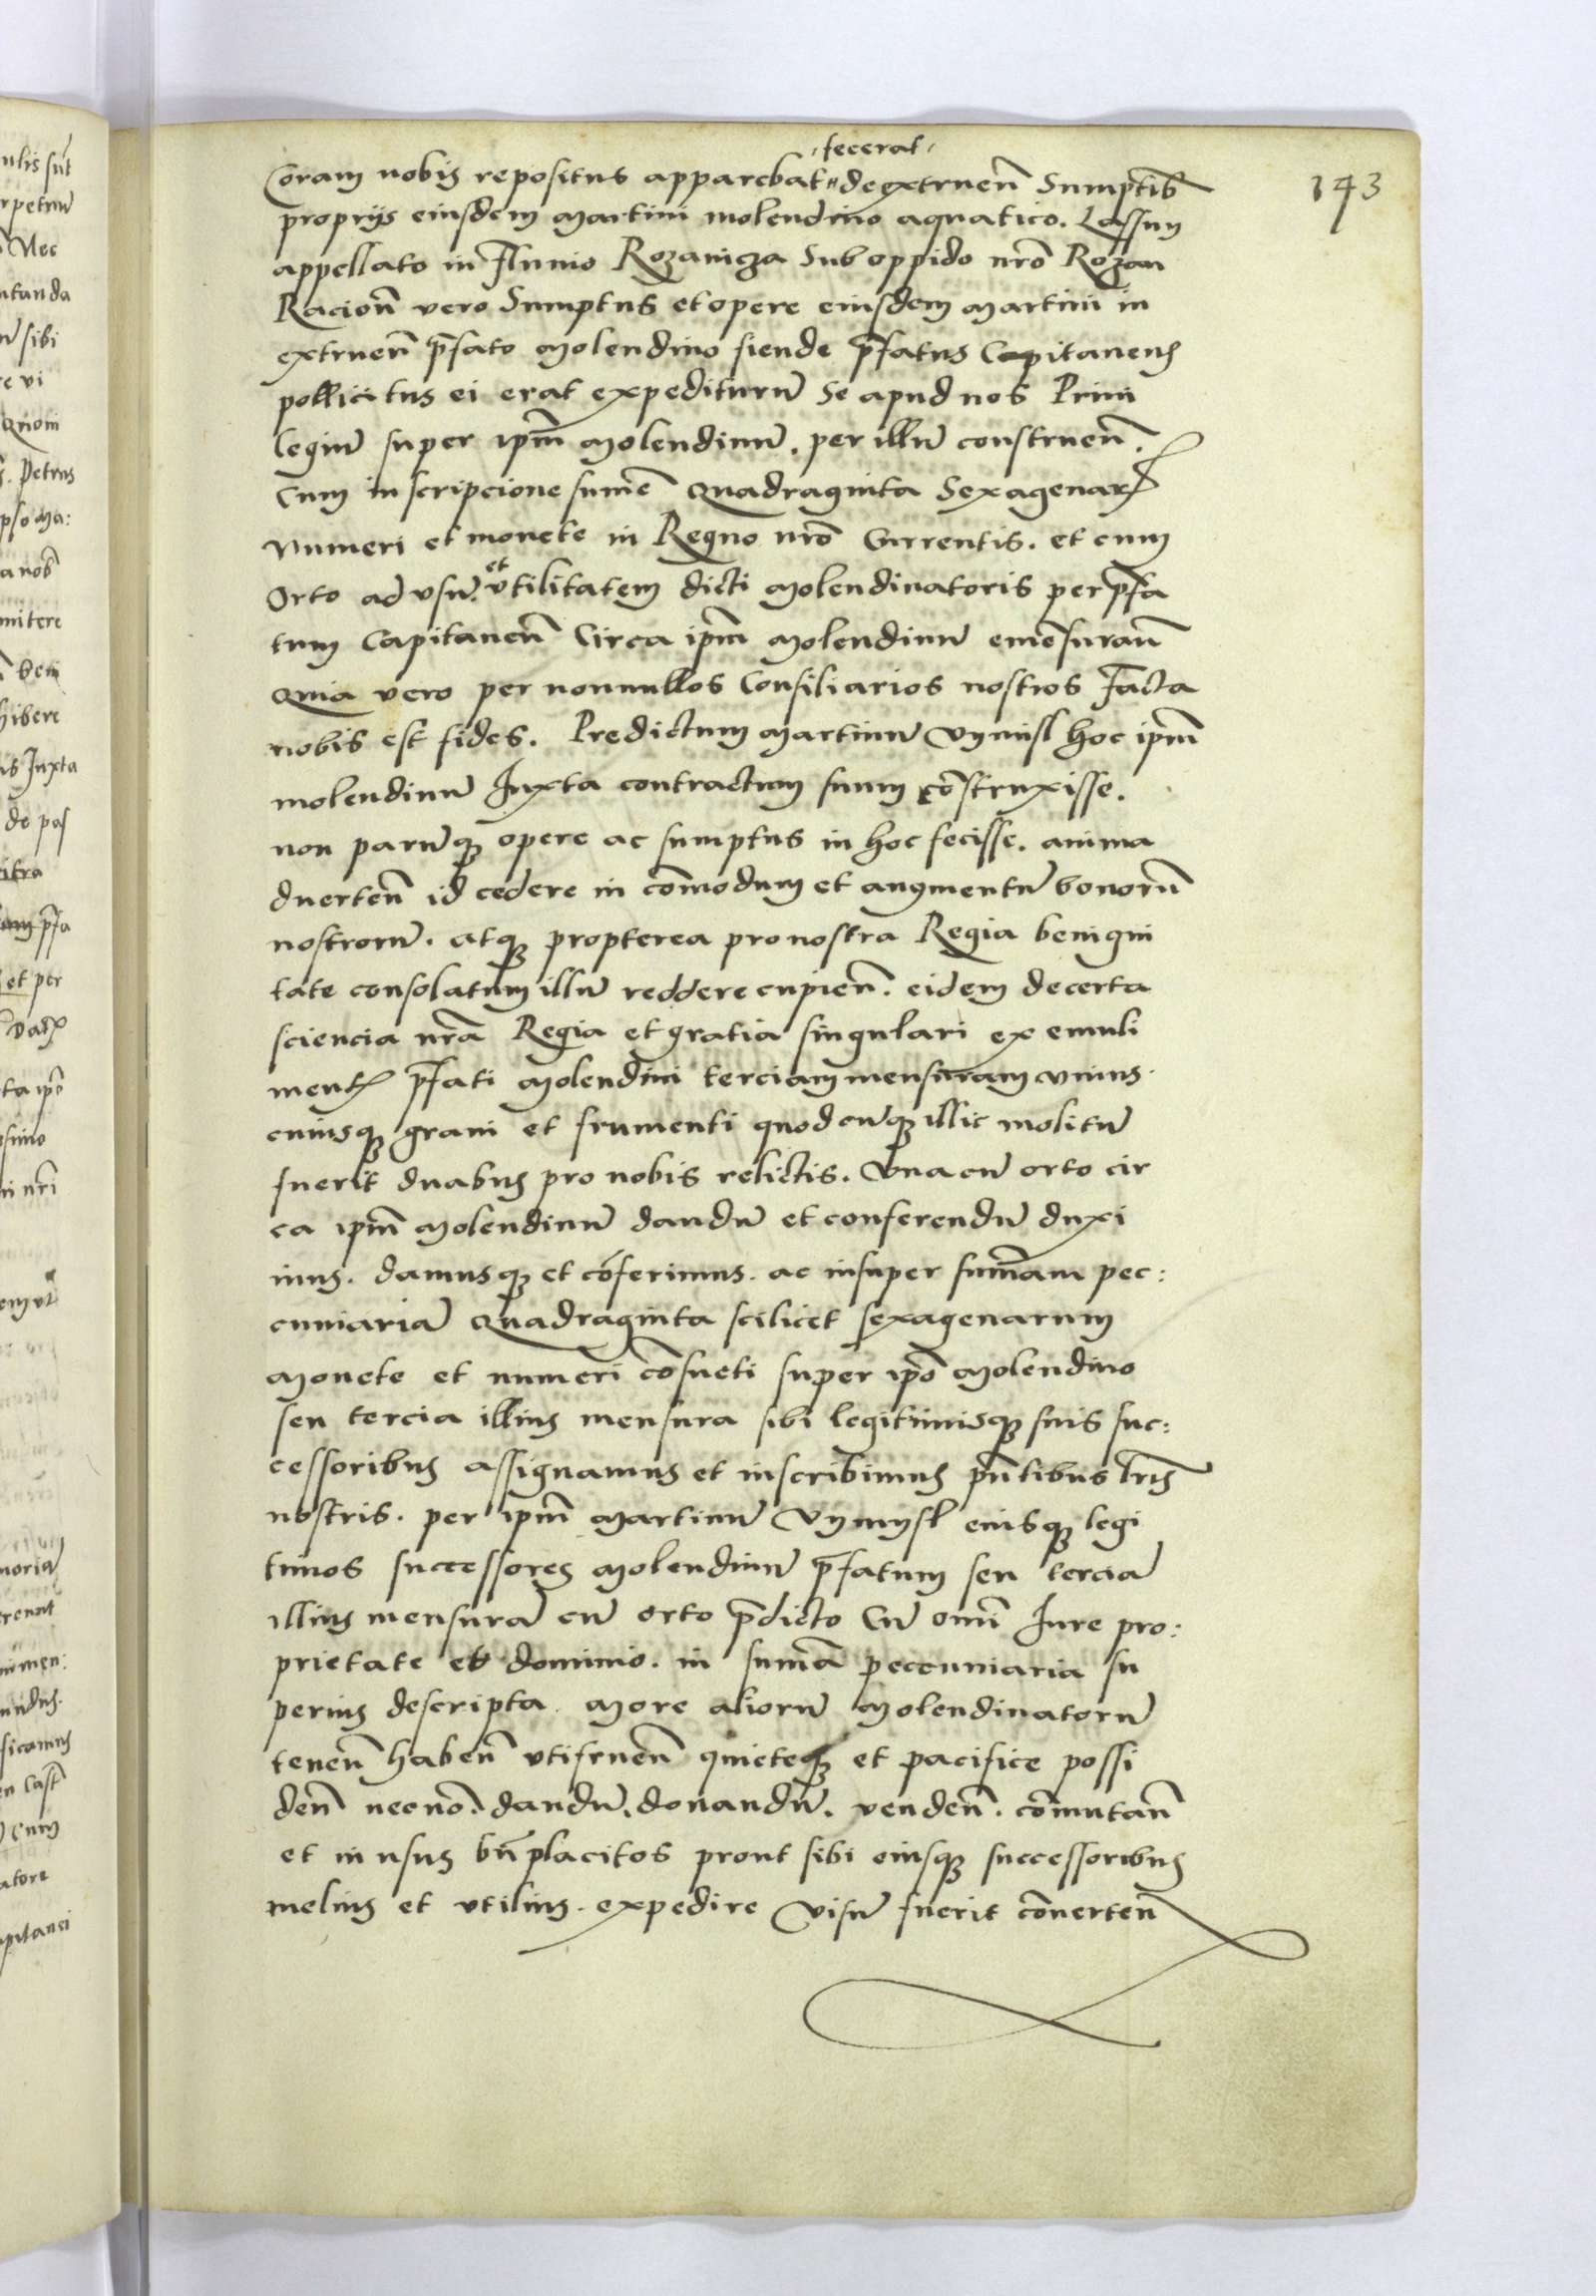 fecerat
Coram nobis repositus apparebat de extruen̄ Sumptib
143
proprijs eiusdem Martini molendino aquatico. Lassum
appellato in Fluuio Rozanicza Sub oppido nrō Rozan
Racion̄ vero Sumptus et opere eiusdem Martini in
extruen̄ p̄fato Molendino fiende p̄fatus Capitaneus
pollicitus ei erat expediturū Se apud nos Priui
legiū super ipm̄ Molendinū. per illū construen̄.
Cum inscripcione sum̄e Quadraginta Sexagenarꝝ
Numeri et monete in Regno nrō Currentis. et cum
Orto ad vsū. et vtilitatem dicti Molendinatoris per p̄fa
tum Capitaneū Circa ipm̄ Molendinū emēsuran̄
Quia vero per nonnullos Consiliarios nostros Facta
nobis est fides. Predictum Martinū Vymisl hoc ipm̄
molendinū Juxta contractum suum cōstruxisse.
non parūqꝫ opere ac sumptus in hoc fecisse. anima
duerten̄ id cedere in cōmodum et augmentū bonorū
nostrorū. atqꝫ propterea pro nostra Regia benigni
tate consolatum illū reddere cupien̄. eidem de certa
sciencia nrā Regia et gratia singulari ex emuli
mentꝭ p̄fati Molendini terciam mensuram vnius
cuiusqꝫ grani et frumenti quodcūqꝫ illic molitū
fuerit duabus pro nobis relictis. Vna cū orto cir
ca ipm̄ Molendinū dandū et conferendū duxi
mus. damusqꝫ et cōferimus. ac insuper sum̄am pec:
cuniariā Quadraginta scilicet sexagenarum
Monete et numeri cōsueti super ipō Molendino
seu tercia illius mensura sibi legitimisqꝫ suis suc:
cessoribus assignamus et inscribimus pn̄tibus lrīs
nostris. per ipm̄ Martinū Vymysl eiusqꝫ legi
timos successores Molendinū p̄fatum seu terciā
illius mensurā cū orto p̄dicto Cū omī Jure pro:
prietate et dominio. in sum̄a peccuniaria su
perius descripta. More aliorū Molendinatorū
tenen̄ haben̄ vtifruen̄ quieteqꝫ et pacifice possi
den̄ necnō. dandū. donandū. venden̄. cōmutan̄
et in usus bn̄placitos prout sibi eiusqꝫ successoribus
melius et vtilius. expedire visū fuerit cōuerten̄